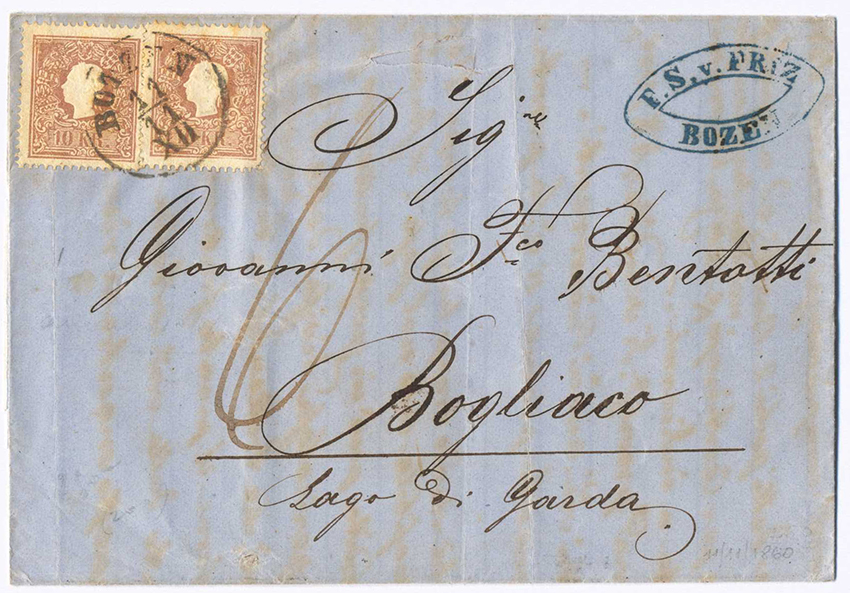 BOTZEN
10 KR.
KR.
F.S.v. FRIZ
BOZEN
Sig.re
Giovanni Fco Bentotti
6
Bogliaco
Lago di Garda
11/11/1860